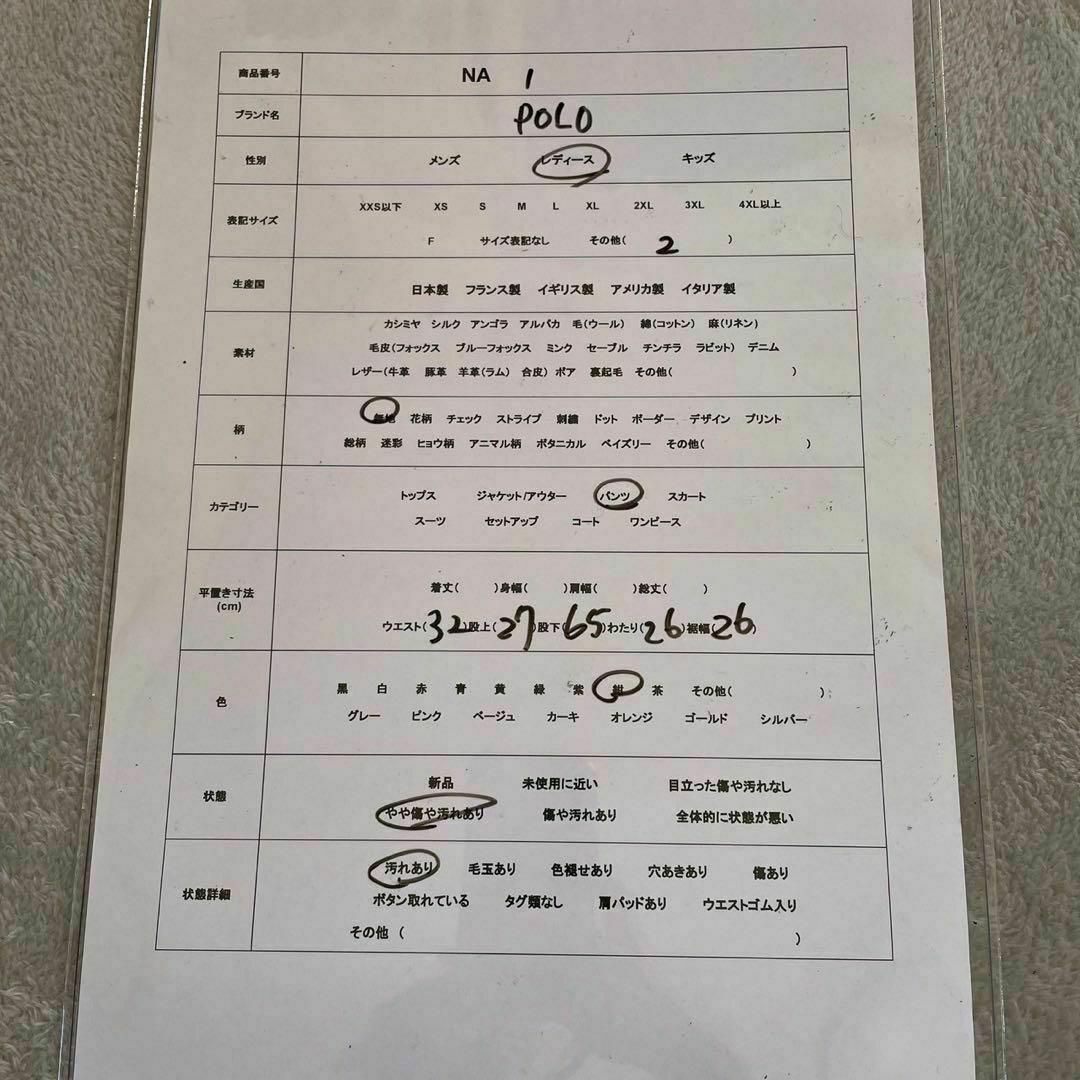 商品番号 NA 1
ブランド名 POLO
性別 メンズ レディース キッズ
表記サイズ XXS以下 XS S M L XL 2XL 3XL 4XL以上
F サイズ表記なし その他( 2 )
生産国 日本製 フランス製 イギリス製 アメリカ製 イタリア製
素材 カシミヤ シルク アンゴラ アルパカ 毛(ウール) 綿(コットン) 麻(リネン)
毛皮(フォックス ブルーフォックス ミンク セーブル チンチラ ラビット) デニム
レザー(牛革 豚革 羊革(ラム) 合皮) ボア 裏起毛 その他( )
柄 無地 花柄 チェック ストライプ 刺繍 ドット ボーダー デザイン プリント
総柄 迷彩 ヒョウ柄 アニマル柄 ボタニカル ペイズリー その他( )
カテゴリー トップス ジャケット/アウター パンツ スカート
スーツ セットアップ コート ワンピース
平置き寸法 (cm) 着丈( )身幅( )肩幅( )総丈( )
ウエスト(32)股上(27)股下(65)わたり(26)裾幅(26)
色 黒 白 赤 青 黄 緑 紫 紺 茶 その他( )
グレー ピンク ベージュ カーキ オレンジ ゴールド シルバー
状態 新品 未使用に近い 目立った傷や汚れなし
やや傷や汚れあり 傷や汚れあり 全体的に状態が悪い
状態詳細 汚れあり 毛玉あり 色褪せあり 穴あきあり 傷あり
ボタン取れている タグ類なし 肩パッドあり ウエストゴム入り
その他 ( )